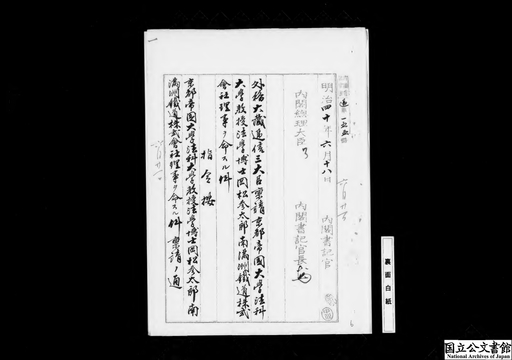 明治四十年六月十八日
内閣書記官
内閣総理大臣
内閣書記官長
外務大蔵逓信三大臣稟請京都帝国大学法科
大学教授法学博士岡松参太郎南満洲鉄道株式
会社理事ヲ命スル件
指令按
京都帝国大学法科大学教授法学博士岡松参太郎南
満洲鉄道株式会社理事ヲ命スル件稟請ノ通
裏面白紙
国立公文書館
National Archives of Japan